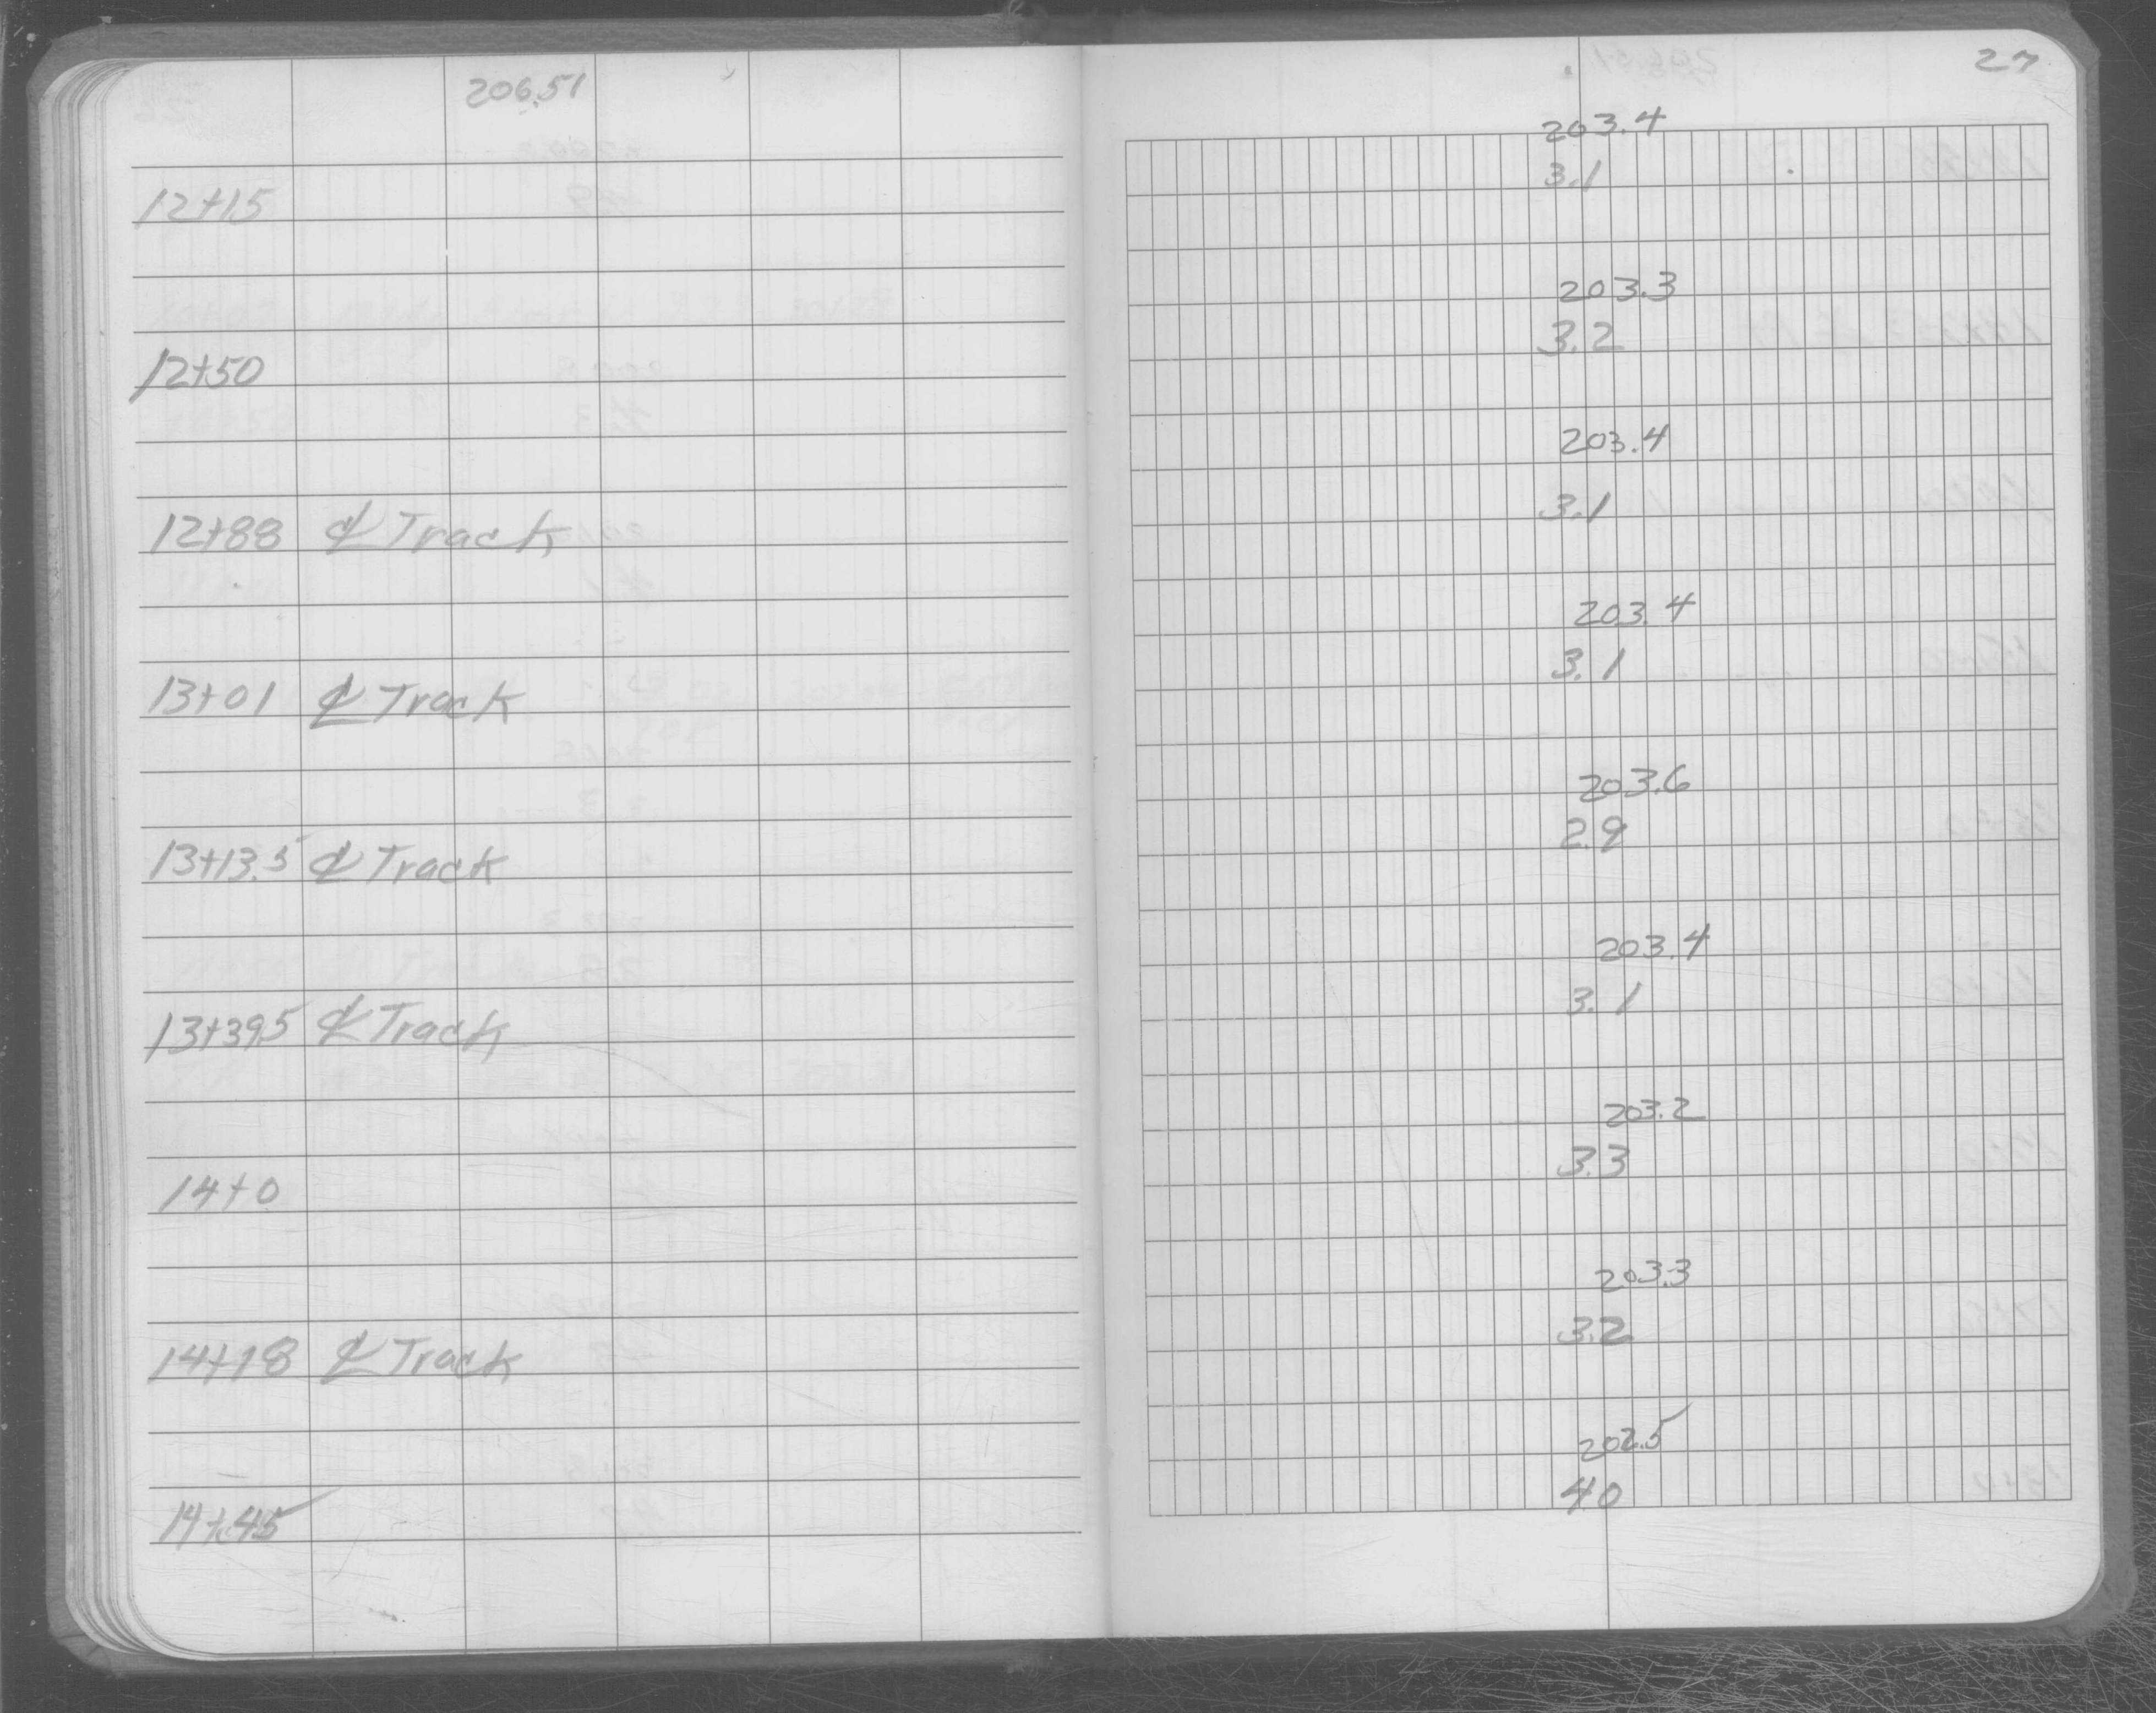 206.51
12+15
12+50
12+88 ℄ Track
13+01 ℄ Track
13+13.5 ℄ Track
13+39.5 ℄ Track
14+0
14+18 ℄ Track
14+45
27
203.4
3.1
203.3
3.2
203.4
3.1
203.4
3.1
203.6
2.9
203.4
3.1
203.2
3.3
203.3
3.2
202.5
4.0